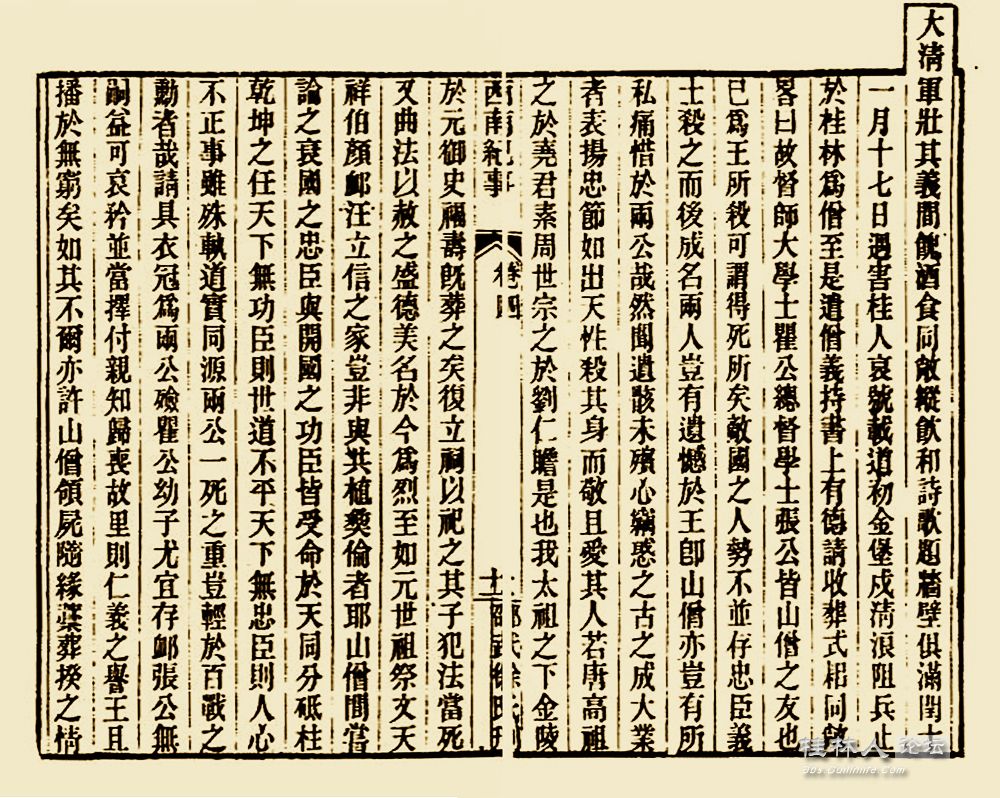 大清軍壯其義間餽酒食同敞縱飲和詩歌題牆壁俱滿閏十
一月十七日遇害桂人哀號載道初金堡戍清浪阻兵止
於桂林爲僧至是遣僧義持書上有德請收葬式耜同敞
畧曰故督師大學士瞿公總督學士張公皆山僧之友也
已爲王所殺可謂得死所矣敵國之人勢不並存忠臣義
士殺之而後成名兩人豈有遺憾於王卽山僧亦豈有所
私痛惜於兩公哉然聞遺骸未殯心竊惑之古之成大業
者表揚忠節如出天性殺其身而敬且愛其人若唐高祖
之於堯君素周世宗之於劉仁贍是也我太祖之下金陵
西南紀事
卷四
十一
於元御史福壽旣葬之矣復立祠以祀之其子犯法當死
又曲法以赦之盛德美名於今爲烈至如元世祖祭文天
祥伯顏卹汪立信之家豈非與其植彝倫者耶山僧間嘗
論之衰國之忠臣與開國之功臣皆受命於天同分砥柱
乾坤之任天下無功臣則世道不平天下無忠臣則人心
不正事雖殊軌道實同源兩公一死之重豈輕於百戰之
勳者哉請具衣冠爲兩公殮瞿公幼子尤宜存卹張公無
嗣益可哀矜並當擇付親知歸喪故里則仁義之譽王且
播於無窮矣如其不爾亦許山僧領屍隨緣藁葬揆之情
桂林人论坛
bbs.guilinlife.com